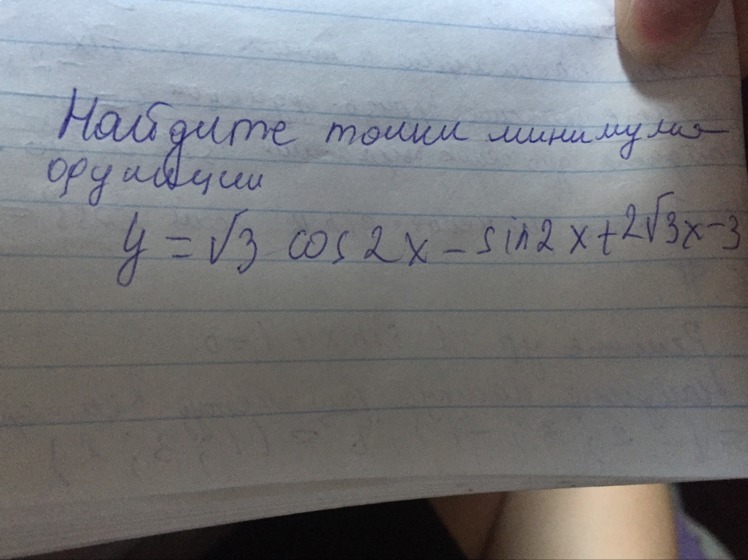 Найдите точки минимума
функции
y = √3 cos 2x - sin 2x + 2√3x - 3